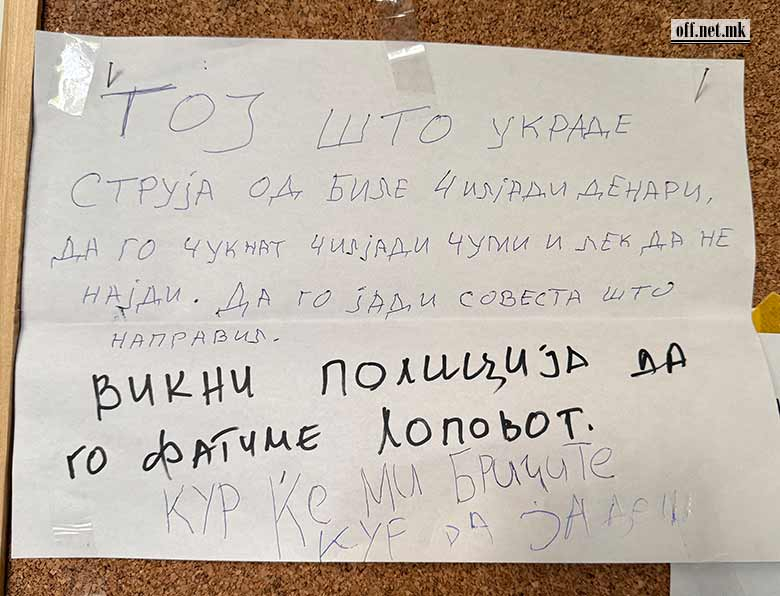 off.net.mk
ТОЈ ШТО УКРАДЕ
СТРУЈА ОД БИЛЕ ЧИЛЈАДИ ДЕНАРИ,
ДА ГО ЧУКНАТ ЧИЛЈАДИ ЧУМИ И ЛЕК ДА НЕ
НАЈДИ. ДА ГО ЈАДИ СОВЕСТА ШТО
НАПРАВИЛ.
ВИКНИ ПОЛИЦИЈА ДА
ГО ФАТИМЕ ЛОПОВОТ.
КУР ЌЕ МИ БРИЧИТЕ
ДА